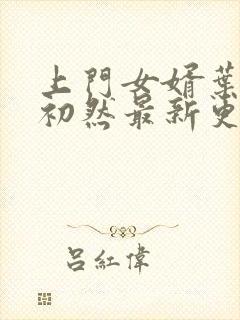 上門女婿葉
初然最新更
呂紅偉